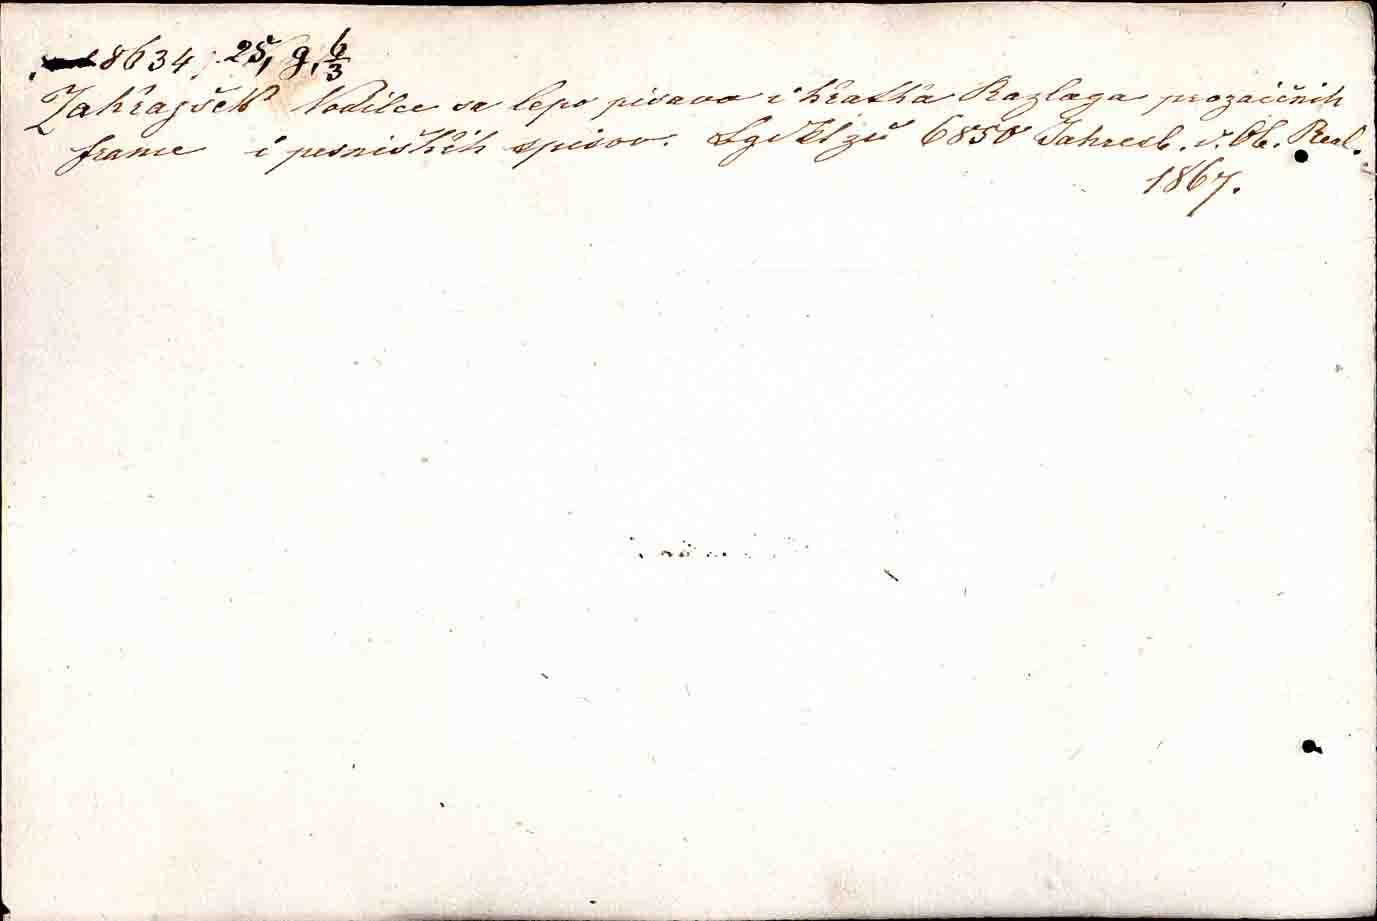 8634, 25, g, 6/3
Zakrajšek Vodilce sa lepo pisavo i kratka Razlaga prozaičnih
frame i pesniških spisov. 6850 Jahresb. d. Ob. Real.
1867.